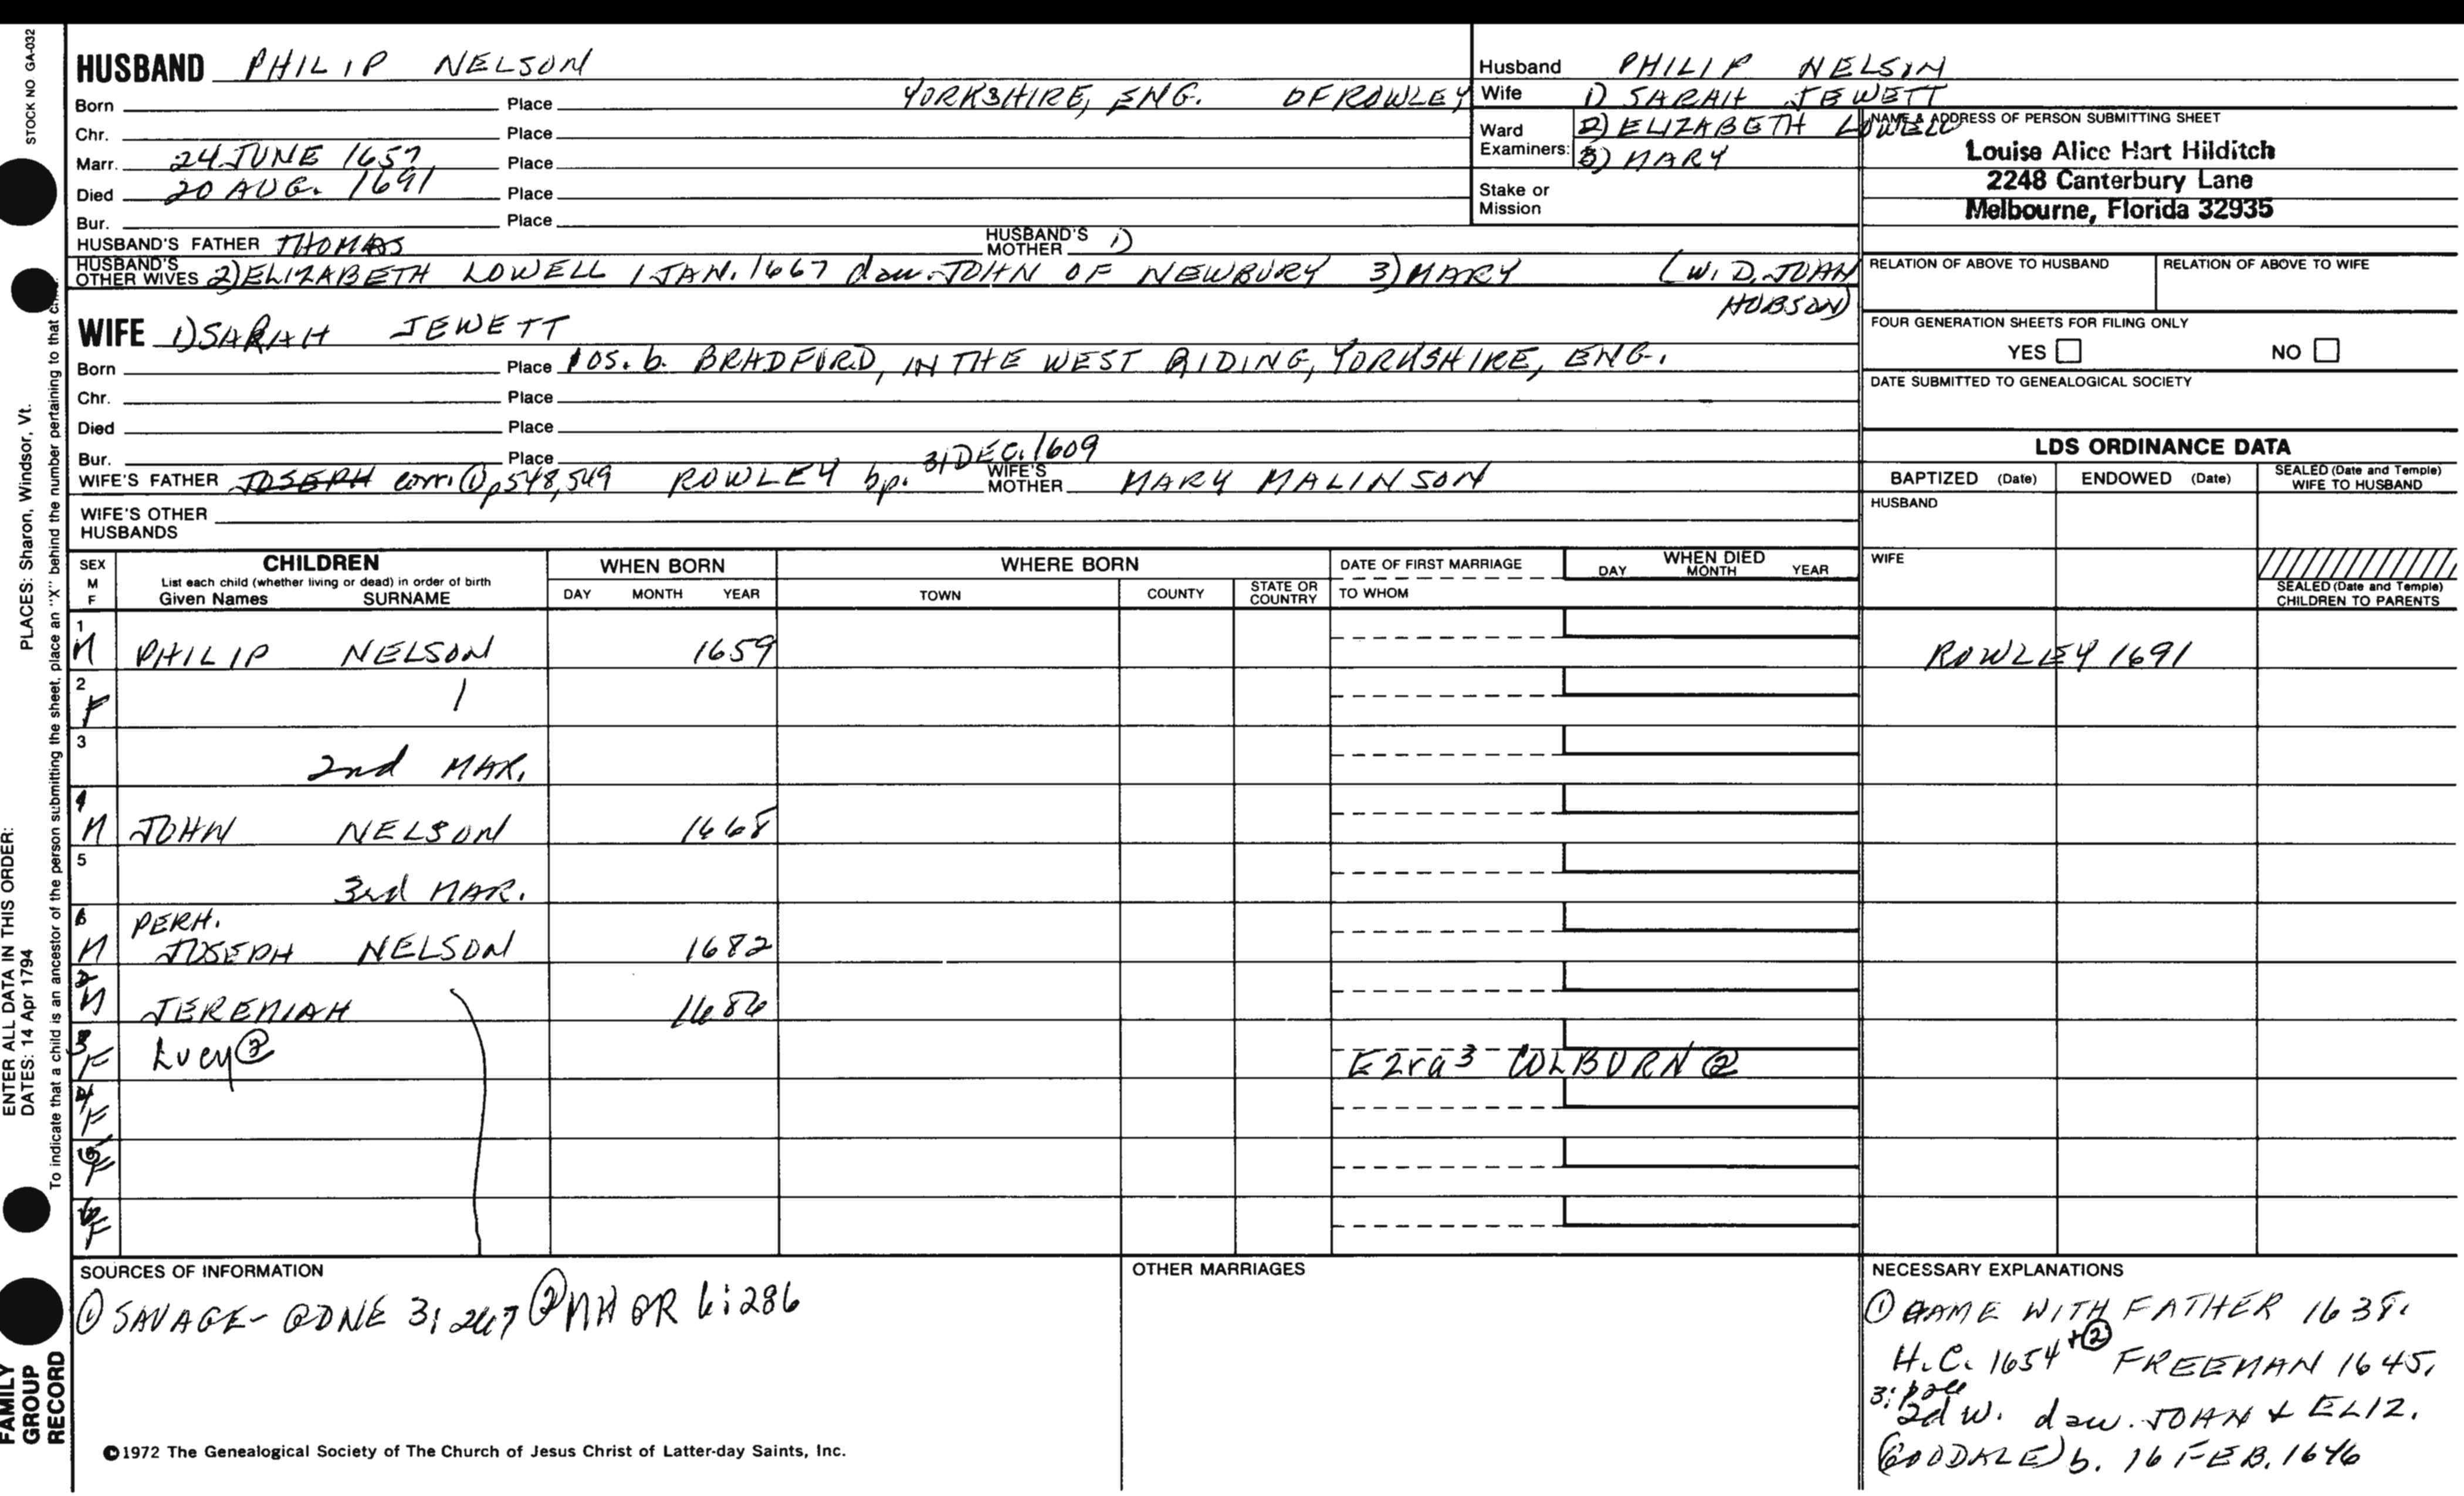 STOCK NO GA-032
PLACES: Sharon, Windsor, Vt.
ENTER ALL DATA IN THIS ORDER:
DATES: 14 Apr 1794
To indicate that a child is an ancestor of the person submitting the sheet, place an "X" behind the number pertaining to that
FAMILY
GROUP
RECORD
HUSBAND PHILIP NELSON
Born Place YORKSHIRE, ENG. OF ROWLEY
Chr. Place
Marr. 24 JUNE 1657 Place
Died 20 AUG. 1691 Place
Bur. Place
HUSBAND'S FATHER THOMAS HUSBAND'S MOTHER 1)
HUSBAND'S OTHER WIVES 2) ELIZABETH LOWELL 1 JAN. 1667 dau. JOHN OF NEWBURY 3) MARY (WID. JOHN
HOBSON)
Husband PHILIP NELSON
Wife 1) SARAH JEWETT
Ward 2) ELIZABETH LOWELL
Examiners: 3) MARY
Stake or
Mission
NAME & ADDRESS OF PERSON SUBMITTING SHEET
Louise Alice Hart Hilditch
2248 Canterbury Lane
Melbourne, Florida 32935
RELATION OF ABOVE TO HUSBAND RELATION OF ABOVE TO WIFE
FOUR GENERATION SHEETS FOR FILING ONLY
YES NO
DATE SUBMITTED TO GENEALOGICAL SOCIETY
WIFE 1) SARAH JEWETT
Born Place POS. b. BRADFORD, IN THE WEST RIDING, YORKSHIRE, ENG.
Chr. Place
Died Place
Bur. Place
WIFE'S FATHER JOSEPH corr. ① p 548, 549 ROWLEY bp. 31 DEC. 1609 WIFE'S MOTHER MARY MALINSON
WIFE'S OTHER
HUSBANDS
LDS ORDINANCE DATA
BAPTIZED (Date) ENDOWED (Date) SEALED (Date and Temple) WIFE TO HUSBAND
HUSBAND
WIFE
SEALED (Date and Temple) CHILDREN TO PARENTS
SEX M F
CHILDREN
List each child (whether living or dead) in order of birth
Given Names SURNAME
WHEN BORN
DAY MONTH YEAR
WHERE BORN
TOWN COUNTY STATE OR COUNTRY
DATE OF FIRST MARRIAGE
TO WHOM
WHEN DIED
DAY MONTH YEAR
1 M PHILIP NELSON 1659 ROWLEY 1691
2 F
3 2nd MAR.
4 M JOHN NELSON 1668
5 3rd MAR.
6 PERH.
M JOSEPH NELSON 1682
2 M JEREMIAH 1686
3 F Lucy② Ezra3 COLBURN②
4 F
5 F
6 F
SOURCES OF INFORMATION
① SAVAGE- GDNE 3: 267 ② NH GR 6: 286
OTHER MARRIAGES
NECESSARY EXPLANATIONS
① CAME WITH FATHER 1638.
H.C. 1654 +② FREEMAN 1645,
2d w. dau. JOHN & ELIZ.
(GOODALE) b. 16 FEB. 1646
©1972 The Genealogical Society of The Church of Jesus Christ of Latter-day Saints, Inc.